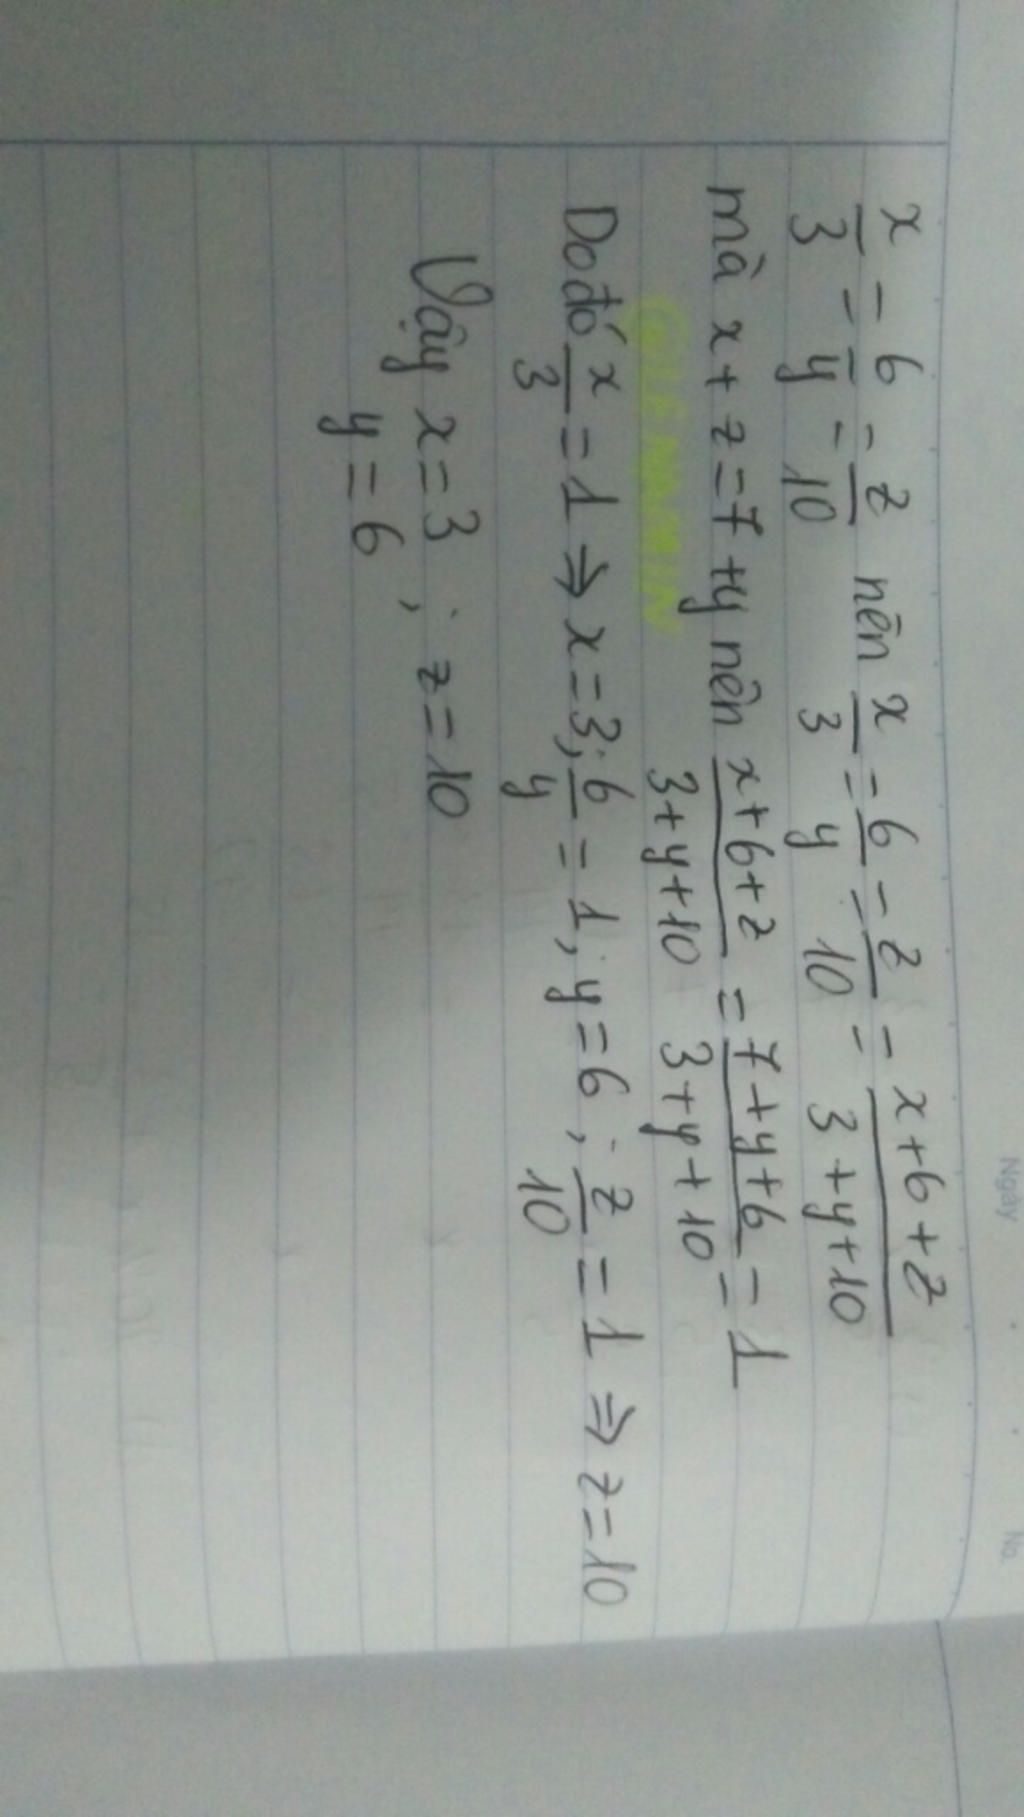 Ngày No.
x/3 = 6/y = z/10 nên x/3 = 6/y = z/10 = x+6+z/3+y+10
mà x+z=7+y nên x+6+z/3+y+10 = 7+y+6/3+y+10 = 1
Do đó x/3 = 1 ⇒ x=3; 6/y = 1, y=6; z/10 = 1 ⇒ z=10
Vậy x=3 ; z=10
y=6